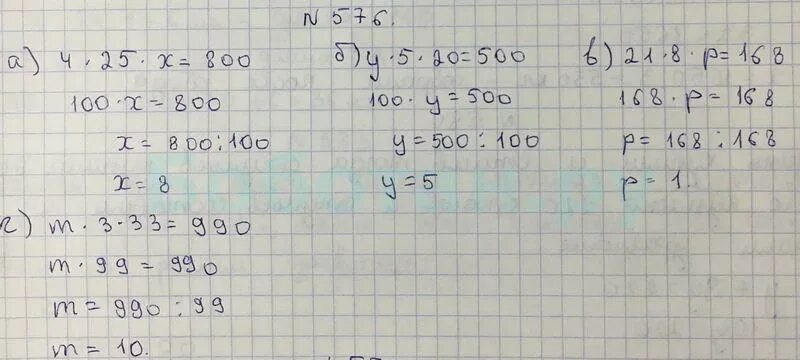 N 576.
а) 4 · 25 · x = 800
100 · x = 800
x = 800 : 100
x = 8
б) y · 5 · 20 = 500
100 · y = 500
y = 500 : 100
y = 5
в) 21 · 8 · p = 168
168 · p = 168
p = 168 : 168
p = 1.
г) m · 3 · 33 = 990
m · 99 = 990
m = 990 : 99
m = 10.